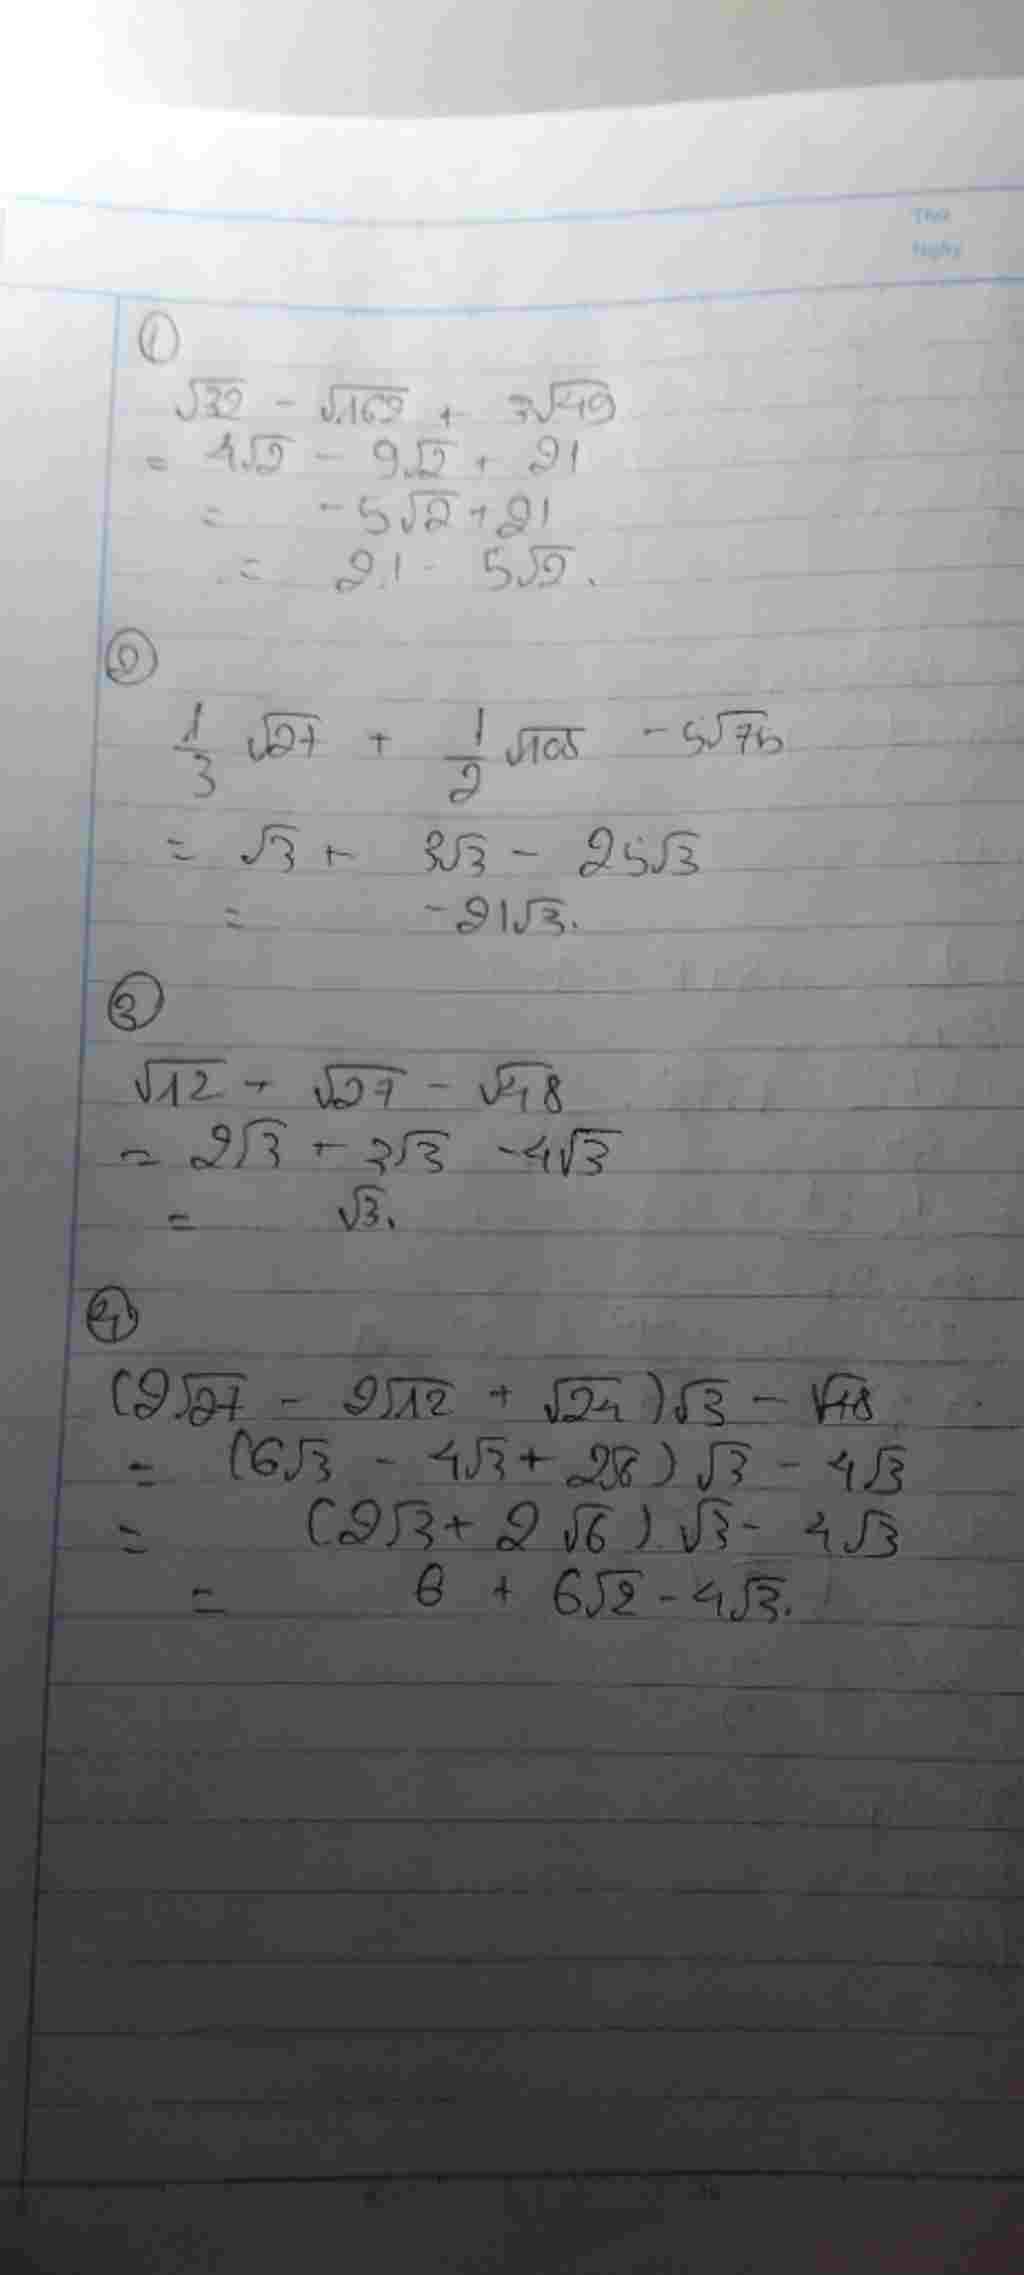 Thứ
Ngày
①
√32 - √162 + 3√49
= 4√2 - 9√2 + 21
= -5√2 + 21
= 21 - 5√2.
②
1/3 √27 + 1/2 √108 - 5√75
= √3 + 3√3 - 25√3
= -21√3.
③
√12 + √27 - √48
= 2√3 + 3√3 - 4√3
= √3.
④
(2√27 - 2√12 + √24)√3 - √48
= (6√3 - 4√3 + 2√6)√3 - 4√3
= (2√3 + 2√6).√3 - 4√3
= 6 + 6√2 - 4√3.